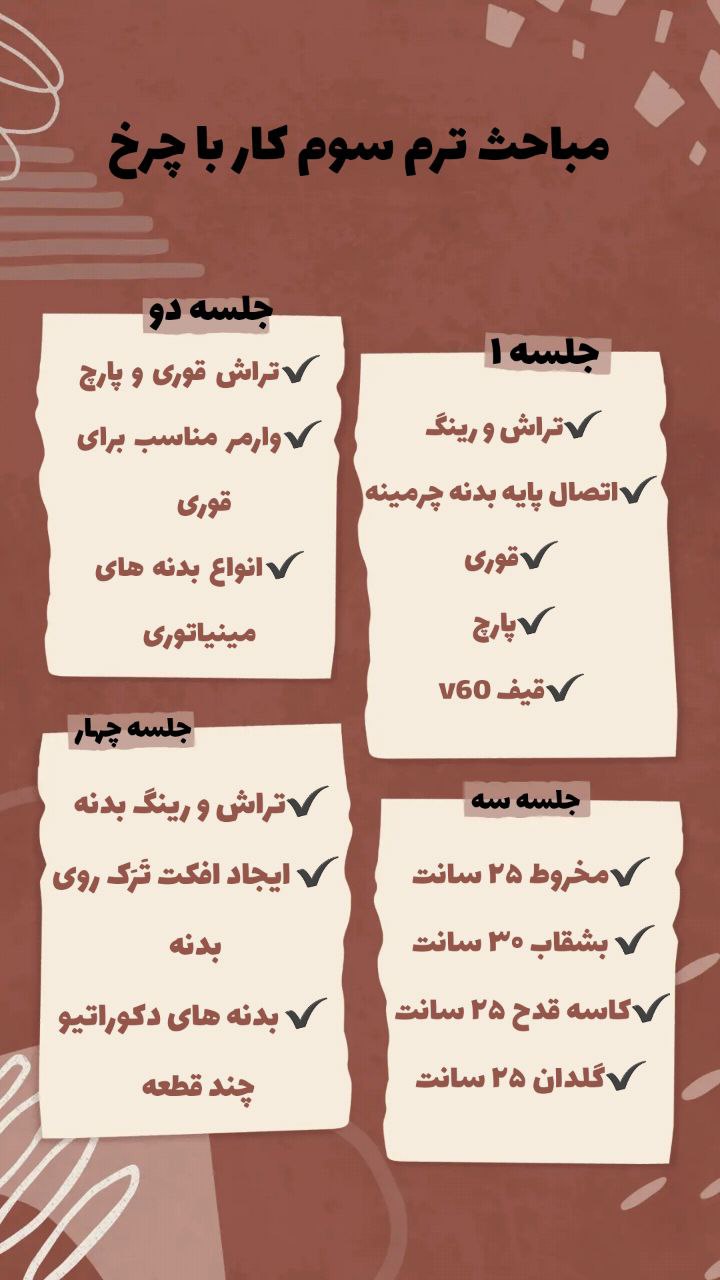 مباحث ترم سوم کار با چرخ
جلسه ۱
✔تراش و رینگ
✔اتصال پایه بدنه چرمینه
✔قوری
✔پارچ
✔قیف v60
جلسه دو
✔تراش قوری و پارچ
✔وارمر مناسب برای
قوری
✔انواع بدنه های
مینیاتوری
جلسه سه
✔مخروط ۲۵ سانت
✔بشقاب ۳۰ سانت
✔کاسه قدح ۲۵ سانت
✔گلدان ۲۵ سانت
جلسه چهار
✔تراش و رینگ بدنه
✔ایجاد افکت تَرَک روی
بدنه
✔بدنه های دکوراتیو
چند قطعه